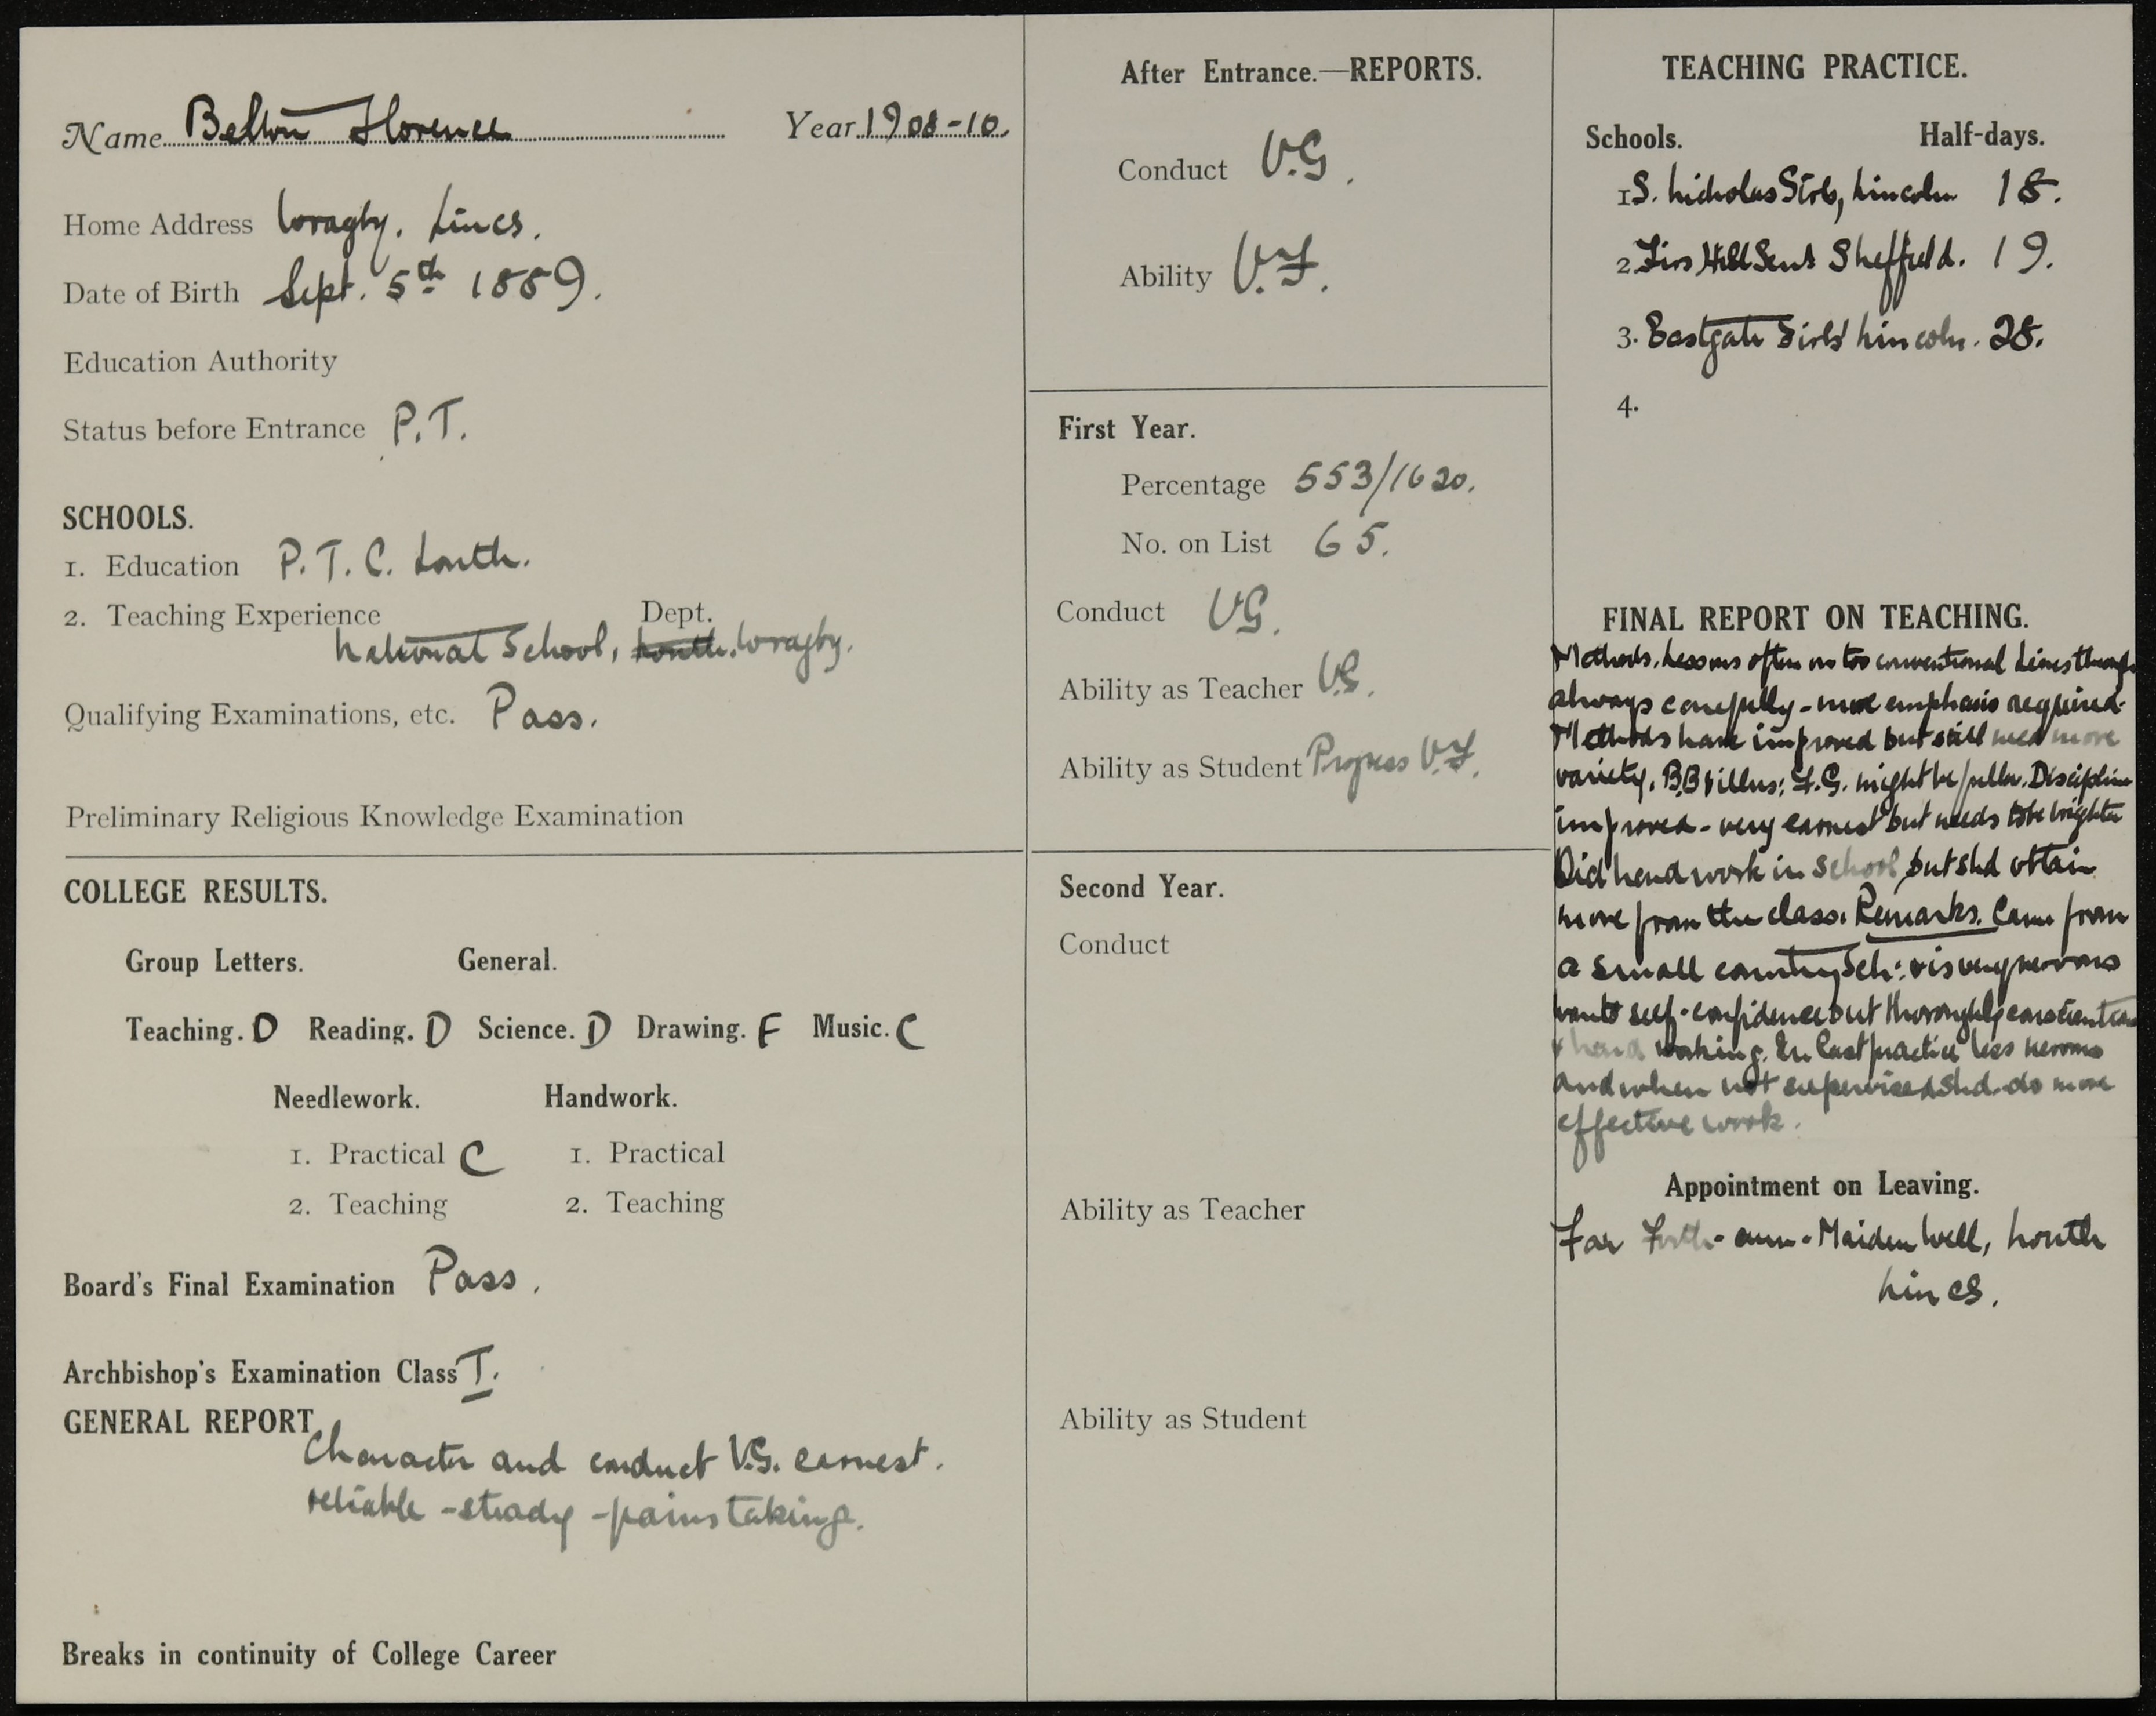 Name Belton Florence Year 1908-10.
Home Address Wragby. Lincs.
Date of Birth Sept. 5th 1889.
Education Authority
Status before Entrance P.T.
SCHOOLS.
1. Education P. T. C. Louth.
2. Teaching Experience Dept.
National School, Louth. Wragby.
Qualifying Examinations, etc. Pass.
Preliminary Religious Knowledge Examination
COLLEGE RESULTS.
Group Letters. General.
Teaching. D Reading. D Science. D Drawing. F Music. C
Needlework. Handwork.
1. Practical C 1. Practical
2. Teaching 2. Teaching
Board's Final Examination Pass.
Archbishop's Examination Class I.
GENERAL REPORT
Character and conduct V.G. earnest.
reliable - steady - painstaking.
Breaks in continuity of College Career
After Entrance.—REPORTS.
Conduct V.G.
Ability V.F.
First Year.
Percentage 553/1620.
No. on List 65.
Conduct VG.
Ability as Teacher V.G.
Ability as Student Progress V.F.
Second Year.
Conduct
Ability as Teacher
Ability as Student
TEACHING PRACTICE.
Schools. Half-days.
1 S. Nicholas Lincoln 18.
2 Firs Hill Sheffield. 19.
3. Eastgate Girls' Lincoln. 28.
4.
FINAL REPORT ON TEACHING.
Methods. Lessons often on too conventional lines though
always carefully - more emphasis required.
Methods have improved but still need more
variety. B.B illus: F.G. might be fuller. Discipline
improved - very earnest but needs to be brighter
Did hand work in school but shd obtain
more from the class. Remarks. Came from
a small country Sch: & is very nervous
wants self-confidence but thoroughly conscientious
& hard working. In last practice less nervous
and when not supervised shd. do more
effective work.
Appointment on Leaving.
Far Forth - cum - Maiden Well, Louth
Lincs.